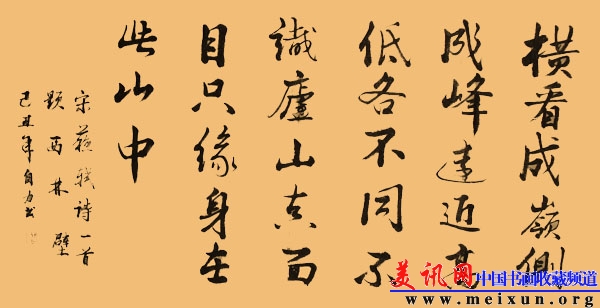 横看成嶺側
成峰遠近高
低各不同不
識廬山真面
目只緣身在
此山中
宋蘇軾詩一首
題西林壁
己丑年自力書
美讯网 中国书画收藏频道
www.meixun.org